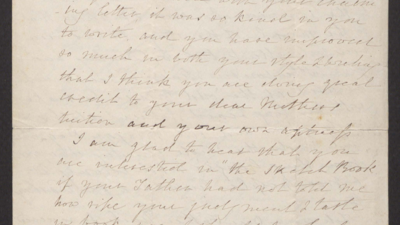 your
ing letter, it was so kind in you
to write, and you have improved
so much in both your style & writing
that I think you are doing great
credit to your dear Mothers
tuition and your own aptness
I am glad to hear that you
are interested in the Sketch Book
if your Father had not told me
how ripe your judgment & taste